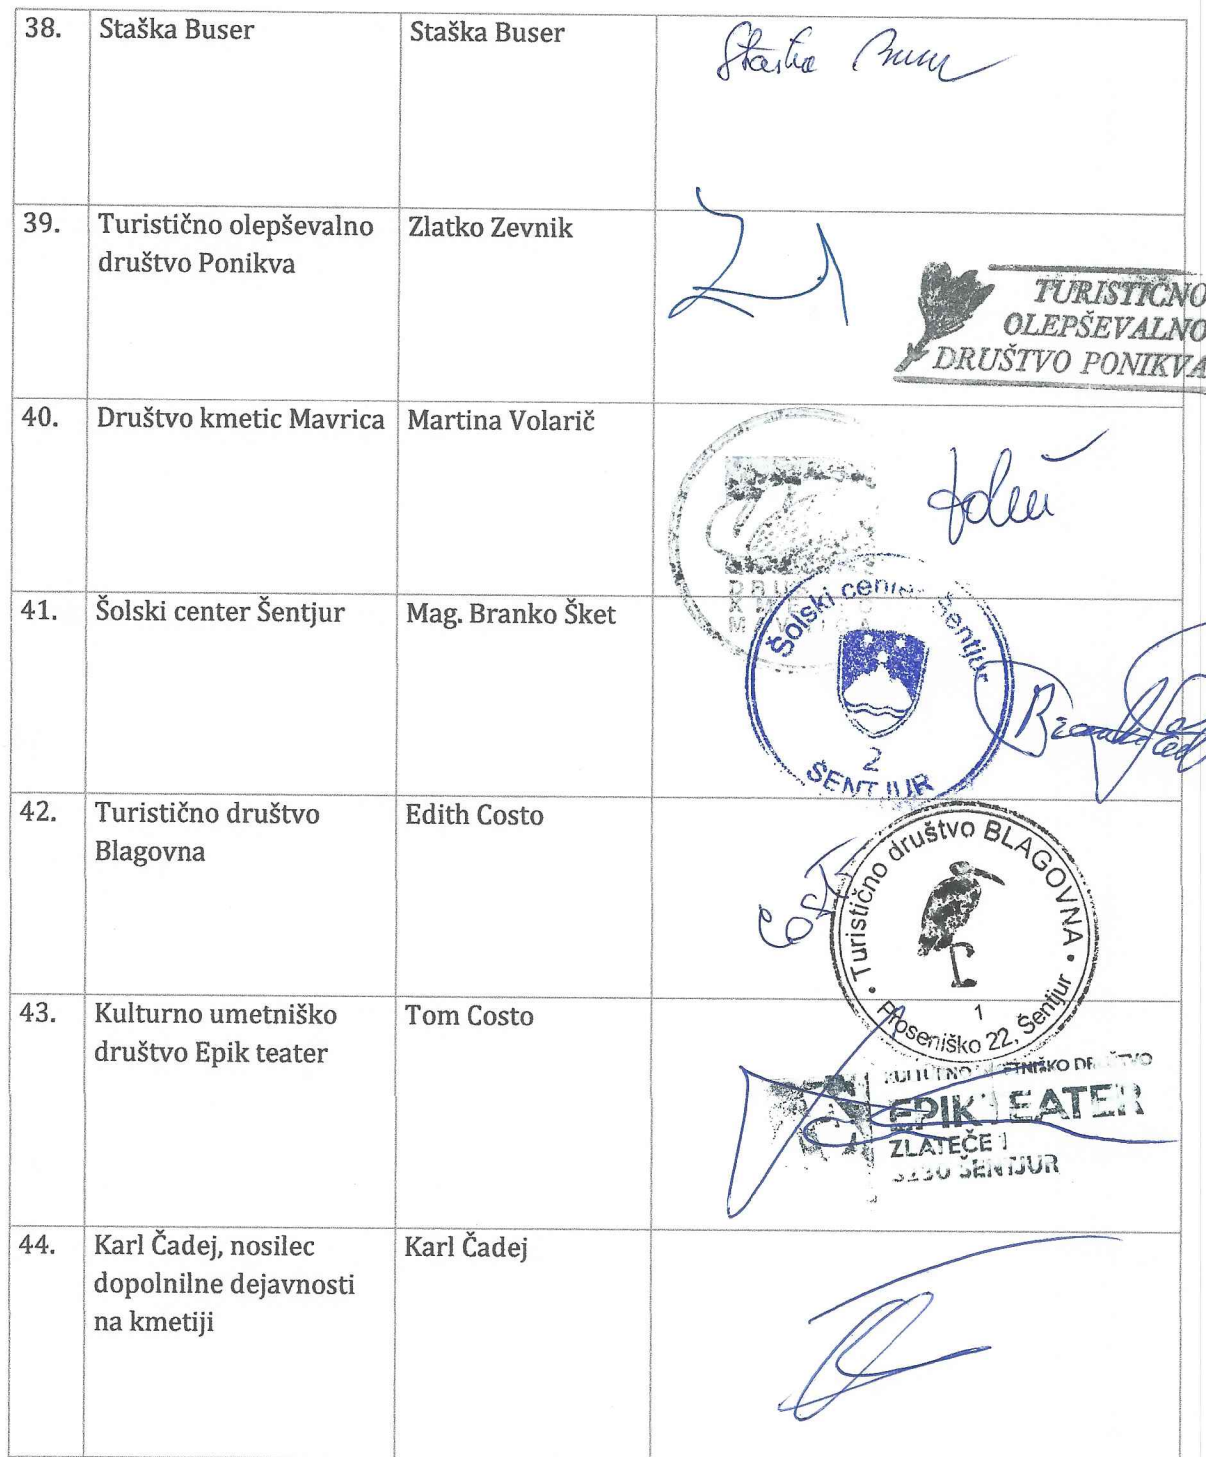 38. Staška Buser Staška Buser Staška Buser
39. Turistično olepševalno Zlatko Zevnik
društvo Ponikva
TURISTIČNO
OLEPŠEVALNO
DRUŠTVO PONIKVA
40. Društvo kmetic Mavrica Martina Volarič
41. Šolski center Šentjur Mag. Branko Šket
Šolski center Šentjur
2
ŠENTJUR
42. Turistično društvo Edith Costo
Blagovna
Costo
Turistično društvo BLAGOVNA
1
Proseniško 22, Šentjur
43. Kulturno umetniško Tom Costo
društvo Epik teater
KULTURNO UMETNIŠKO DRUŠTVO
EPIK TEATER
ZLATEČE 1
3230 ŠENTJUR
44. Karl Čadej, nosilec Karl Čadej
dopolnilne dejavnosti
na kmetiji